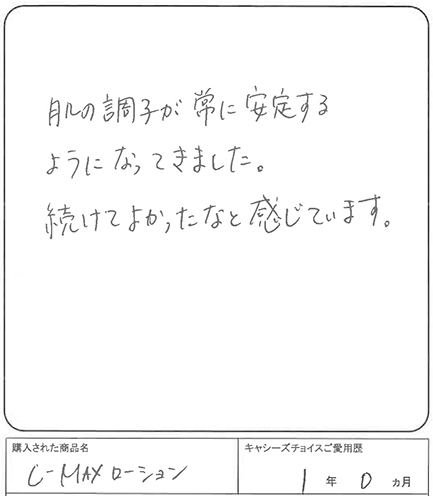 肌の調子が常に安定する
ようになってきました。
続けてよかったなと感じています。
購入された商品名
C-MAXローション
キャシーズチョイスご愛用歴
1年0ヵ月